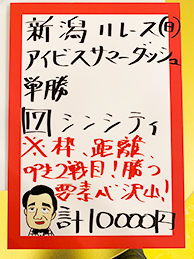 新潟11レース㊐
アイビスサマーダッシュ
単勝
17 シンシティ
※枠、距離、
叩き2戦目!勝つ
要素が沢山!
計10000円